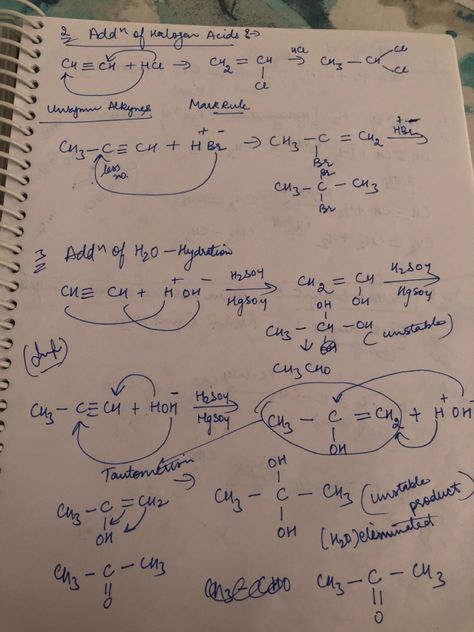 2 Addn of Halogen Acids :→
CH≡CH + HCl → CH2=CH → HCl CH3–CH
Cl Cl Cl
Unsymm Alkynes Mark Rule
CH3–C≡CH + H+ Br- → CH3–C=CH2 H+Br- →
less no. Br
Br
CH3–C–CH3
Br
3 Addn of H2O – Hydration
CH≡CH + H+ OH- H2SO4 HgSO4 → CH2=CH H2SO4 HgSO4 →
OH
OH
CH3–CH–OH
(unstable)
↓
CH3CHO
(Imp)
CH3–C≡CH + HOH- H2SO4 HgSO4 → CH3–C=CH2 + H+ OH-
OH
Tautomerism →
CH3–C=CH2
OH
OH
CH3–C–CH3 (unstable product)
OH
(H2O) eliminated
CH3–C–CH3
O
CH3–C–CH3
O